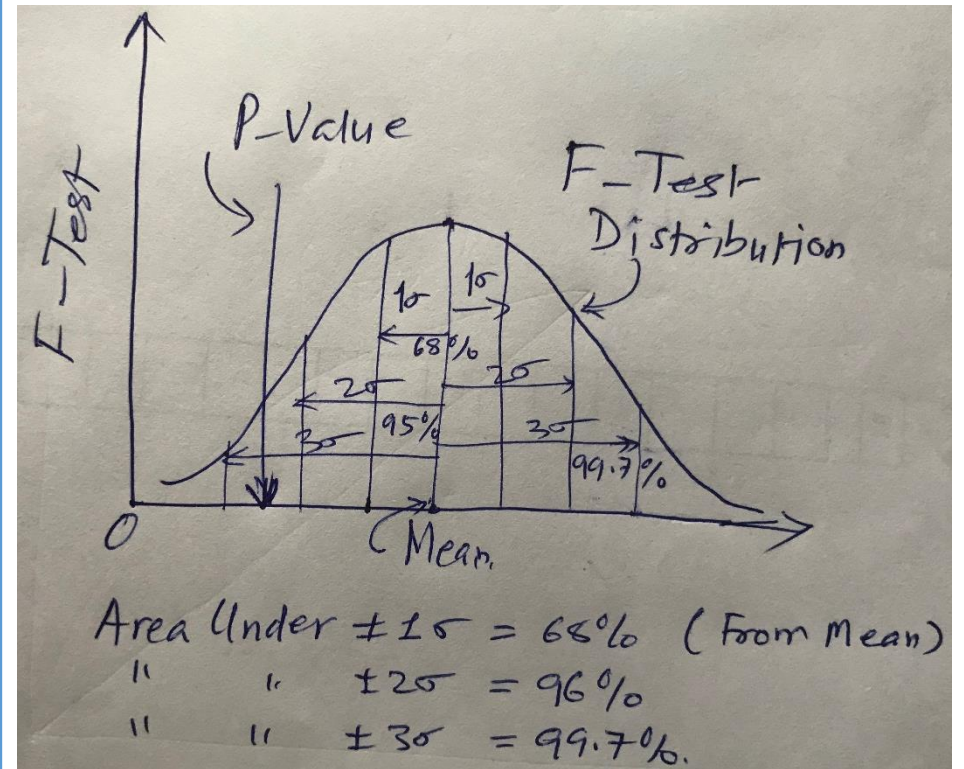 P-Value
F-Test
Distribution
F-Test
1σ
1σ
68%
2σ
2σ
95%
3σ
3σ
99.7%
O
Mean.
Area Under ±1σ = 68% (From Mean)
" " ±2σ = 96%
" " ±3σ = 99.7%.